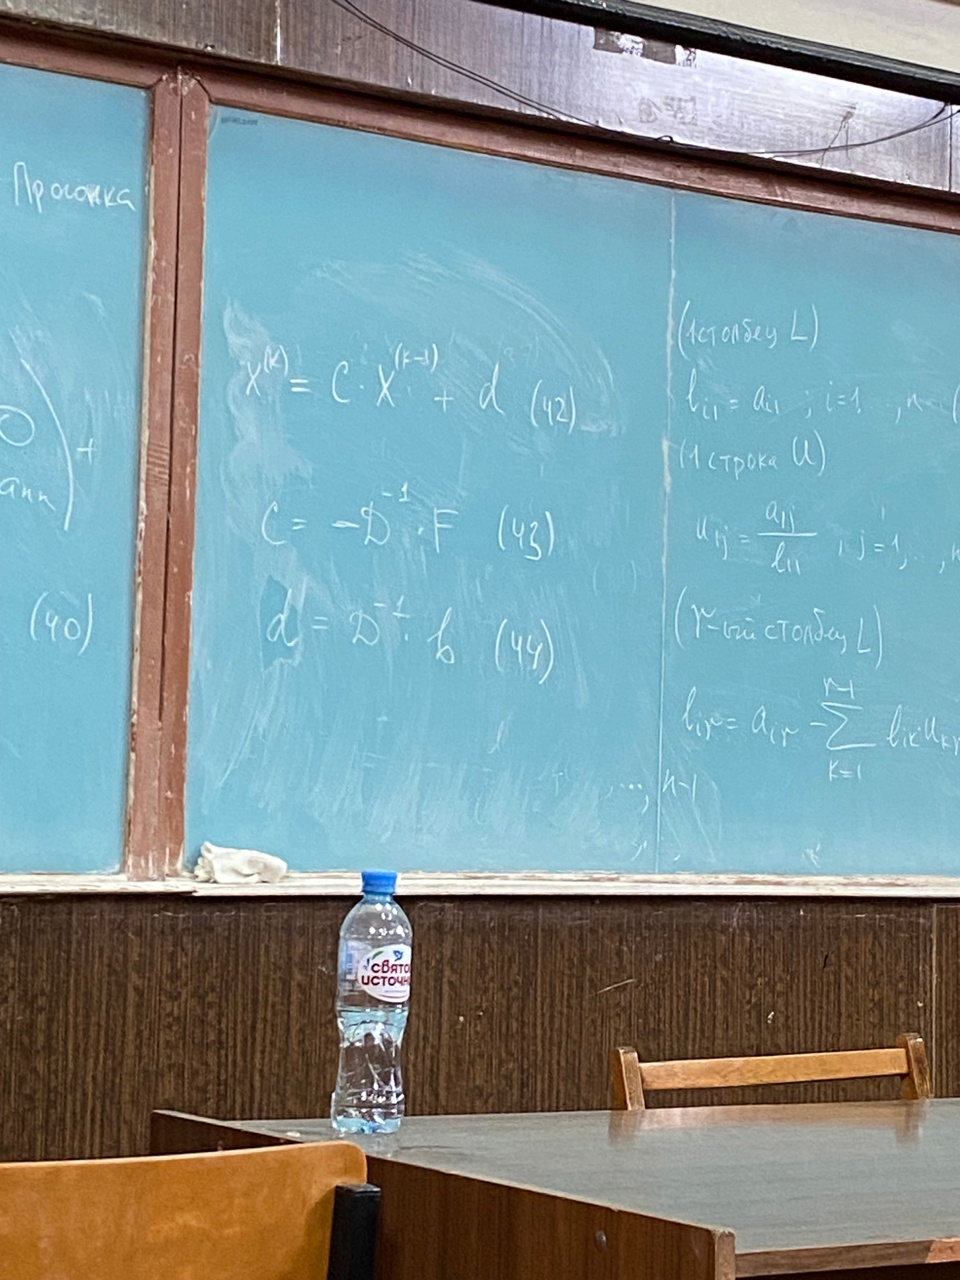 Прогонка
+
(40)
X^(k) = C · X^(k-1) + d (42)
C = -D^-1 · F (43)
d = D^-1 · b (44)
, ..., n-1
(1 столбец L)
l_i1 = a_i1 ; i=1, ..., n
(1 строка U)
u_1j = a_1j / l_11 , j=1, ...,
(r-ый столбец L)
l_ir = a_ir - ∑_{k=1}^{r-1} l_ik u_kr
СВЯТО
ИСТОЧН